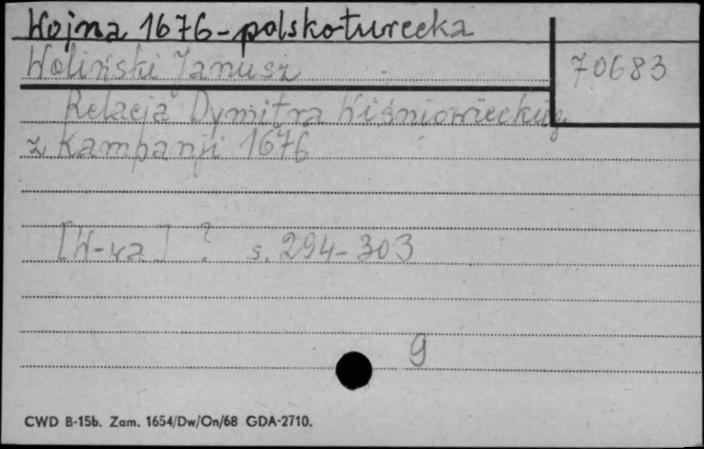 Wojna 1676-polsko-turecka
Woliński Janusz
70683
Relacja Dymitra Wiśniowieckieg.
z Kampanji 1676
[W-wa] ? s. 294-303
9
CWD B-15b. Zam. 1654/Dw/On/68 GDA-2710.